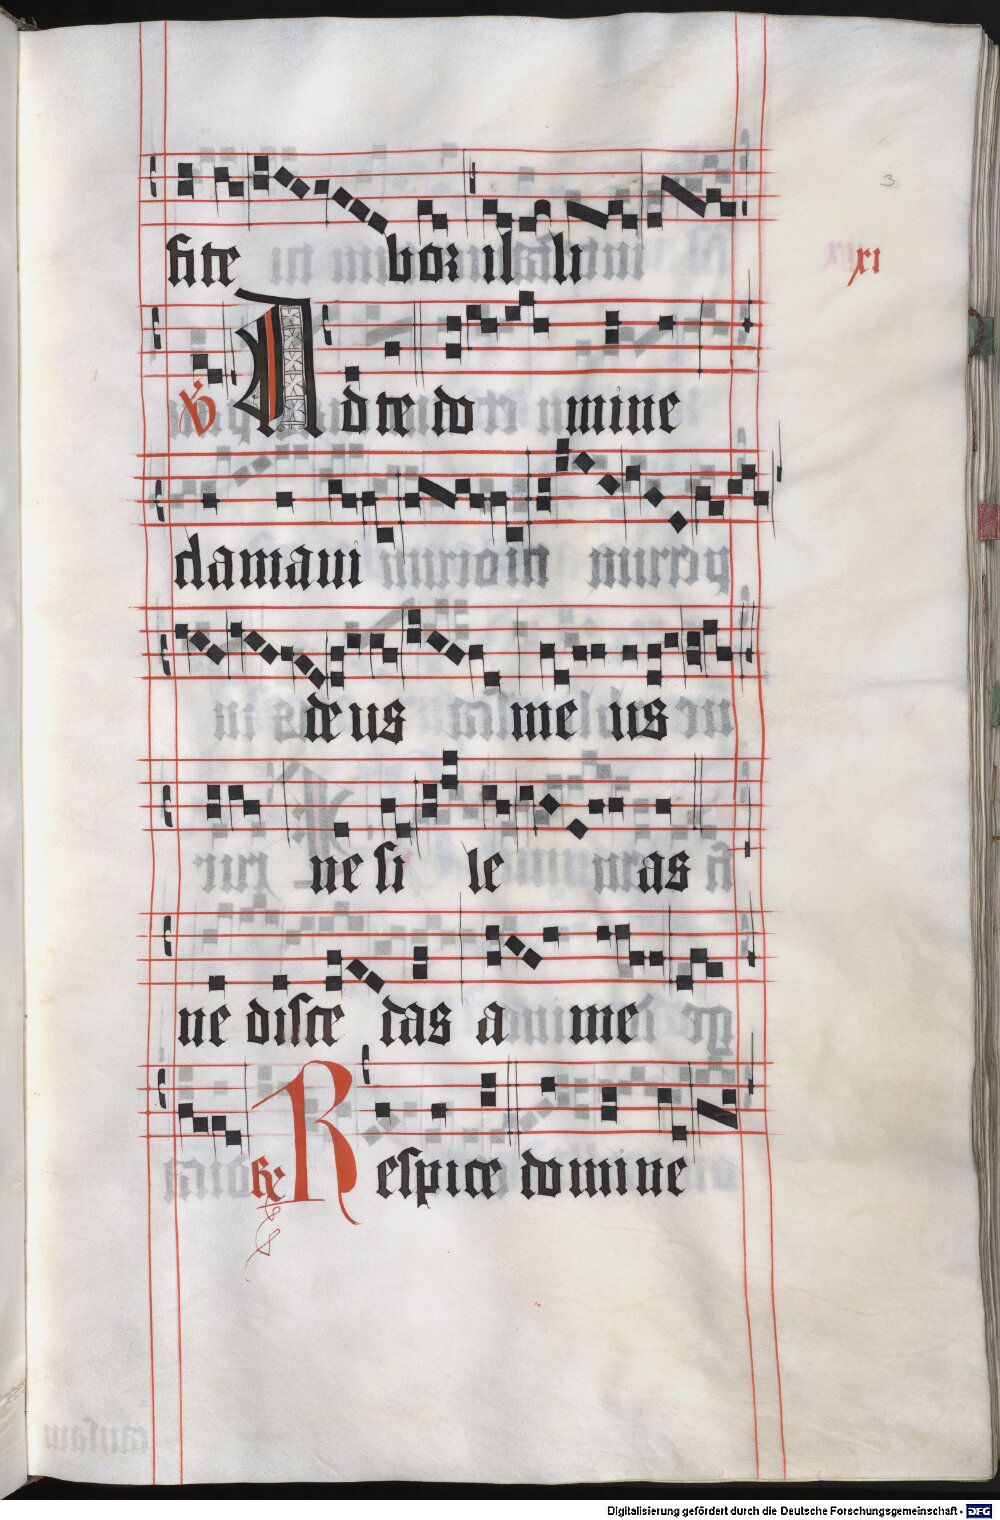 fite bor il li
3
xi
℣ Ad te do mine
clamaui
deus me us
ne si le as
ne disce das a me
℟ Respice domine
Digitalisierung gefördert durch die Deutsche Forschungsgemeinschaft - DFG